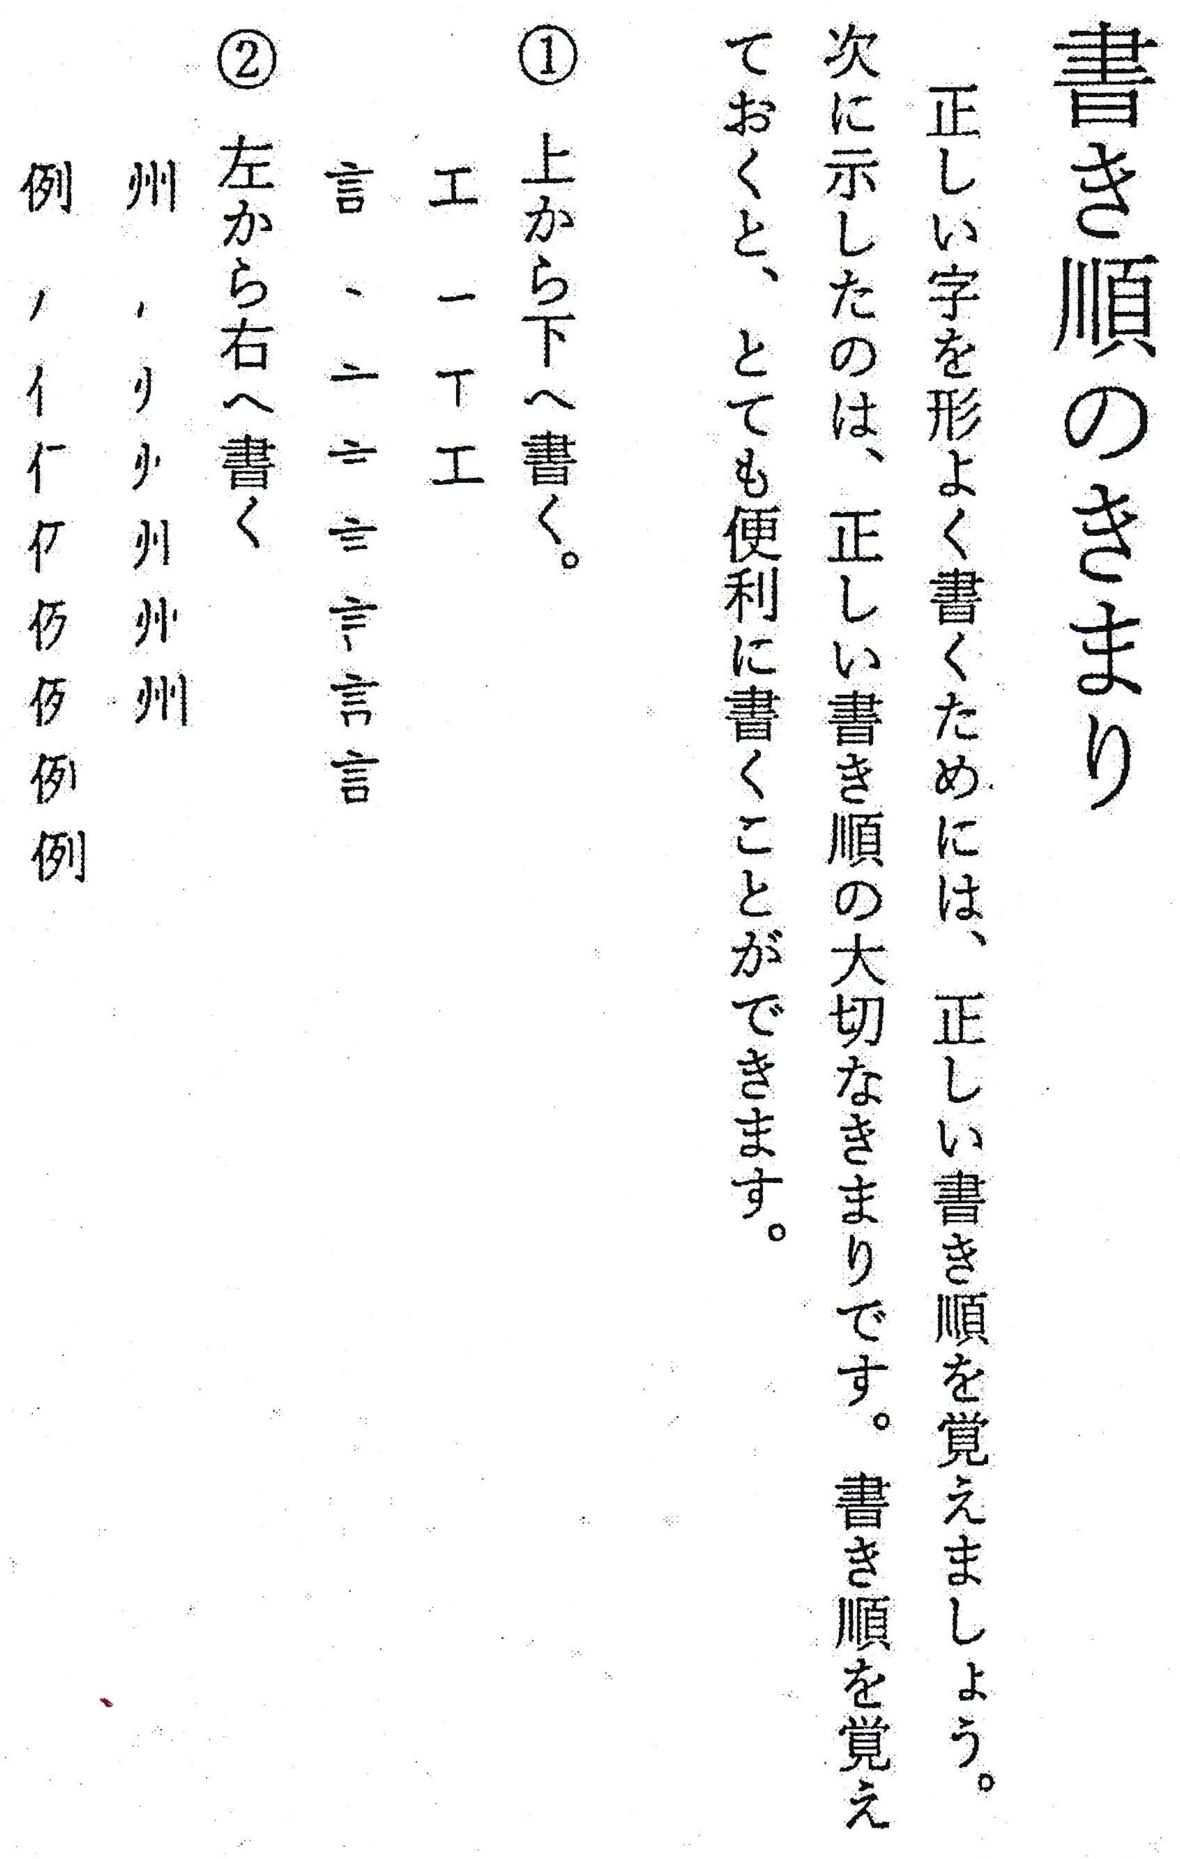 書き順のきまり
正しい字を形よく書くためには、正しい書き順を覚えましょう。
次に示したのは、正しい書き順の大切なきまりです。書き順を覚え
ておくと、とても便利に書くことができます。
① 上から下へ書く。
工 一 丅 工
言 丶 亠
② 左から右へ書く
州
例 丿 亻